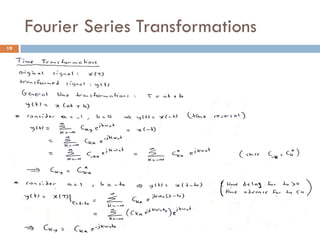 Fourier Series Transformations
19
Time Transformations
original signal : x(τ)
transformed signal : y(t)
General time transformations : τ = at + b
y(t) = x(at + b)
* consider a = -1, b = 0 ⇒ y(t) = x(-t) (time reversal)
y(t) = Σ_{k=-∞}^{∞} C_{ky} e^{jkω₀t} = x(-t)
= Σ_{k=-∞}^{∞} C_{kx} e^{-jkω₀t}
= Σ_{k=-∞}^{∞} C_{-kx} e^{jkω₀t} = Σ_{k=-∞}^{∞} C*_{kx} e^{jkω₀t} (since C_{-k} = C_k*)
⇒ C_{ky} = C*_{kx}
* consider a = 1, b = -t₀ ⇒ y(t) = x(t-t₀) (time delay for t₀>0
time advance for t₀<0)
y(t) = x(τ)|_{τ=t-t₀} = Σ_{k=-∞}^{∞} C_{kx} e^{jkω₀(t-t₀)}
= Σ_{k=-∞}^{∞} (C_{kx} e^{-jkω₀t₀}) e^{jkω₀t}
⇒ C_{ky} = C_{kx} e^{-jkω₀t₀}